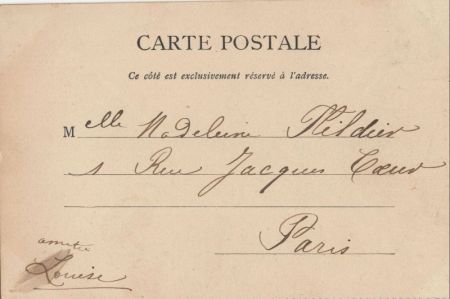 CARTE POSTALE
Ce côté est exclusivement réservé à l'adresse.
Melle Madeleine
1 Rue Jacques Cœur
Paris
amitié
Louise